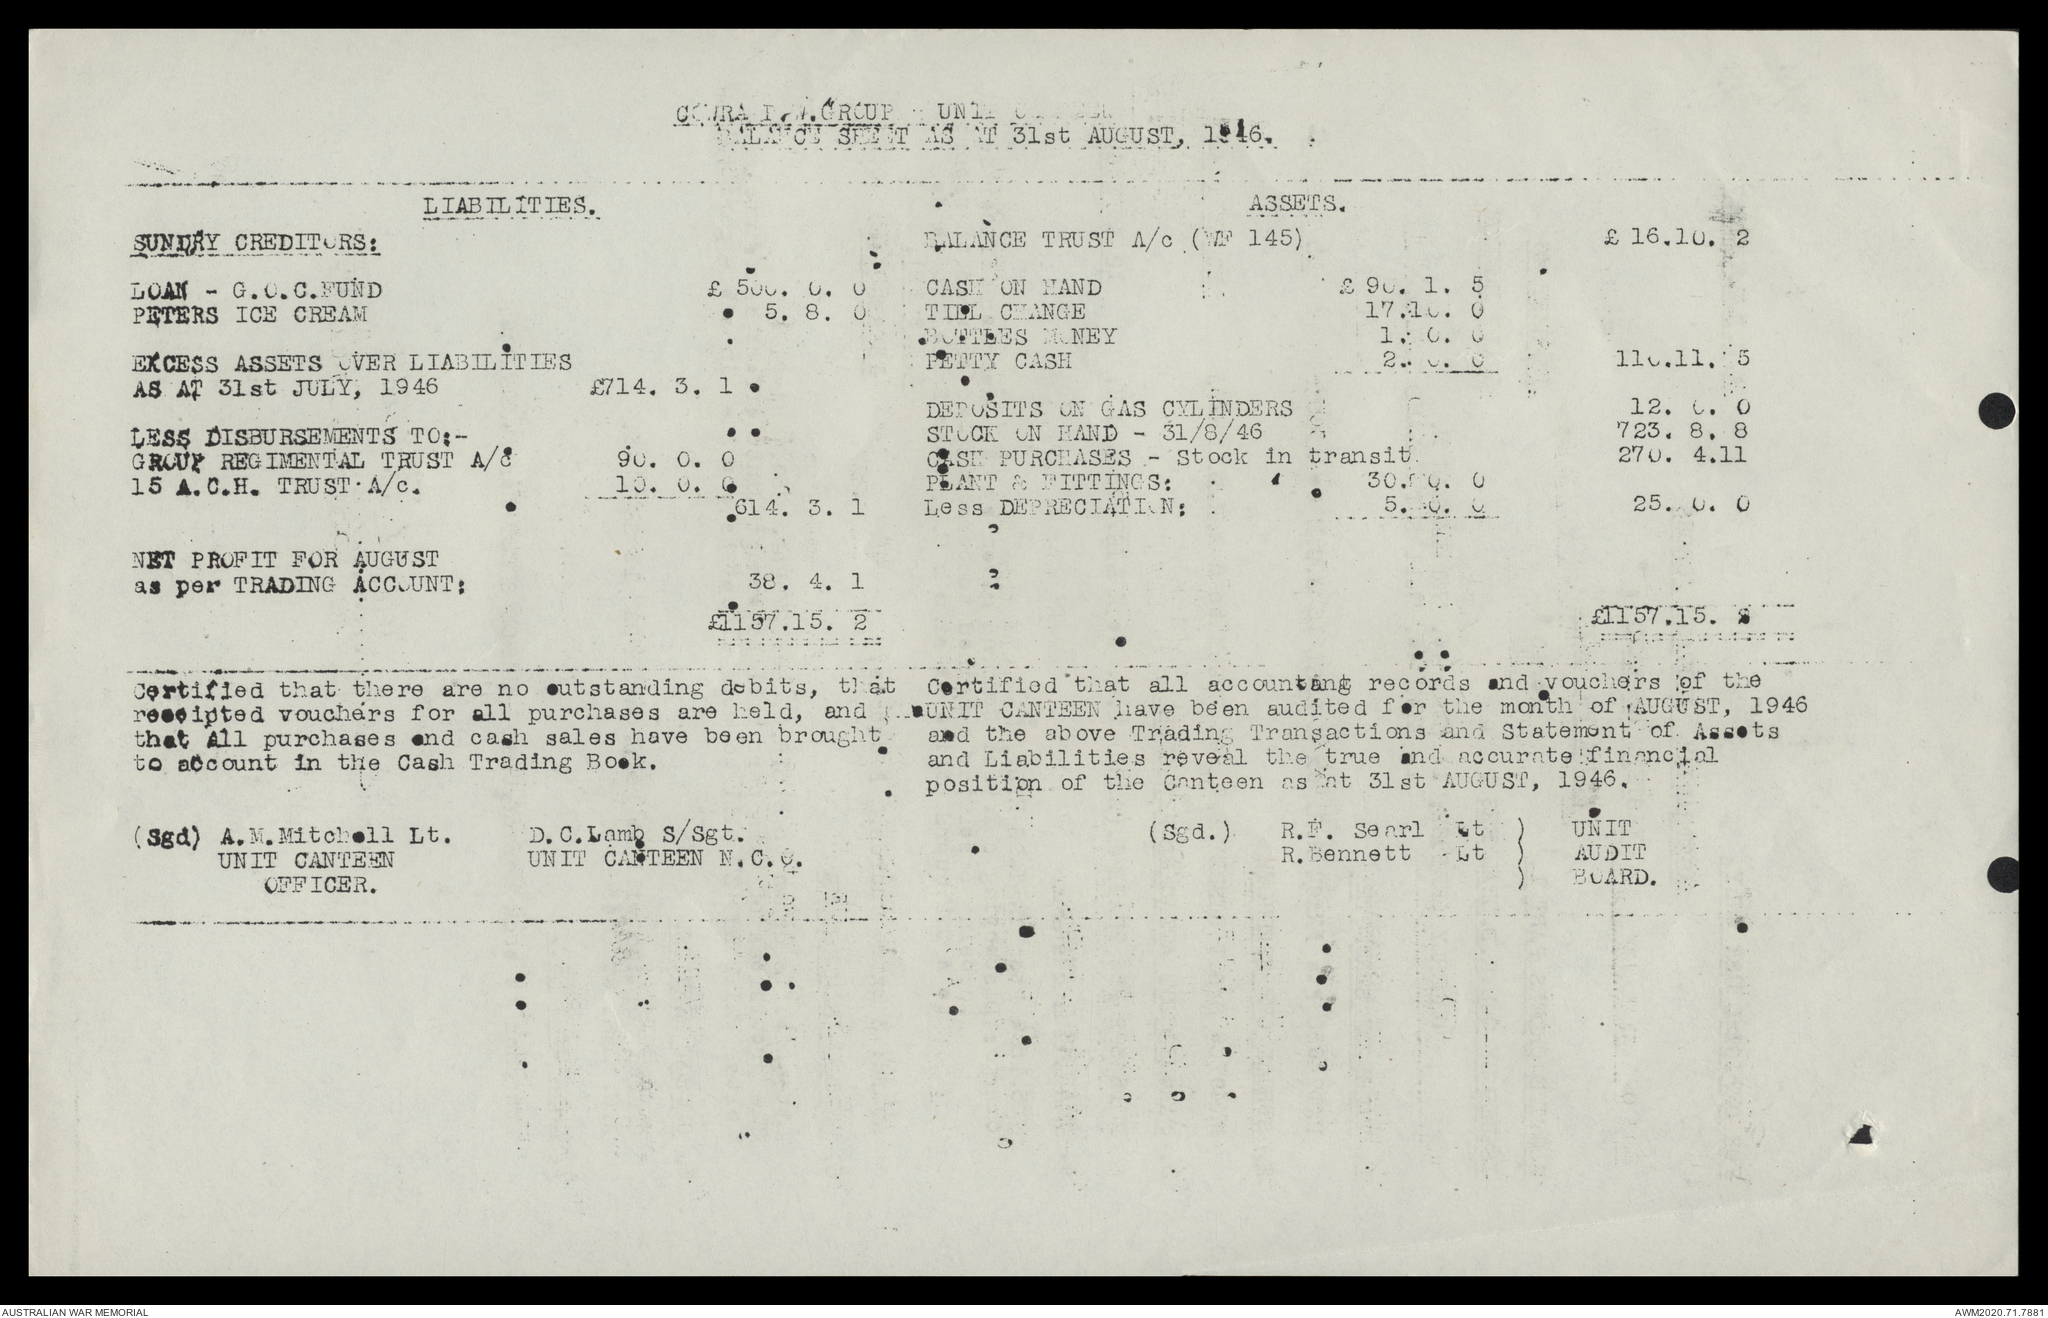 COWRA P.W.GROUP - UNIT CANTEEN
BALANCE SHEET AS AT 31st AUGUST, 1946.
LIABILITIES.
SUNDRY CREDITORS:
LOAN - G.O.C.FUND £ 500. 0. 0
PETERS ICE CREAM 5. 8. 0
EXCESS ASSETS OVER LIABILITIES
AS AT 31st JULY, 1946 £714. 3. 1
LESS DISBURSEMENTS TO:-
GROUP REGIMENTAL TRUST A/c 90. 0. 0
15 A.C.H. TRUST A/c. 10. 0. 0
614. 3. 1
NET PROFIT FOR AUGUST
as per TRADING ACCOUNT: 38. 4. 1
£1157.15. 2
ASSETS.
BALANCE TRUST A/c (WF 145) £ 16.10. 2
CASH ON HAND £ 90. 1. 5
TILL CHANGE 17.10. 0
BOTTLES MONEY 1. 0. 0
PETTY CASH 2. 0. 0 110.11. 5
DEPOSITS ON GAS CYLINDERS 12. 0. 0
STOCK ON HAND - 31/8/46 723. 8. 8
CASH PURCHASES - Stock in transit 270. 4.11
PLANT & FITTINGS: 30. 0. 0
Less DEPRECIATION: 5. 0. 0 25. 0. 0
£1157.15. 2
Certified that there are no outstanding debits, that
receipted vouchers for all purchases are held, and
that all purchases and cash sales have been brought
to account in the Cash Trading Book.
(Sgd) A.M.Mitchell Lt. D.C.Lamb S/Sgt.
UNIT CANTEEN UNIT CANTEEN N.C.O.
OFFICER.
Certified that all accountang records and vouchers of the
UNIT CANTEEN have been audited for the month of AUGUST, 1946
and the above Trading Transactions and Statement of Assets
and Liabilities reveal the true and accurate financial
position of the Canteen as at 31st AUGUST, 1946.
(Sgd.) R.F. Searl Lt ) UNIT
R.Bennett Lt ) AUDIT
) BOARD.
AUSTRALIAN WAR MEMORIAL
AWM2020.71.7881